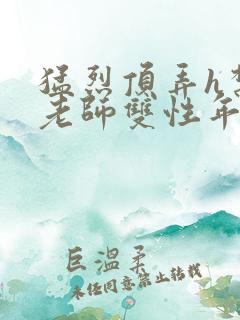 猛烈頂弄h
老師雙性年
巨溫柔
未经同意禁止转载